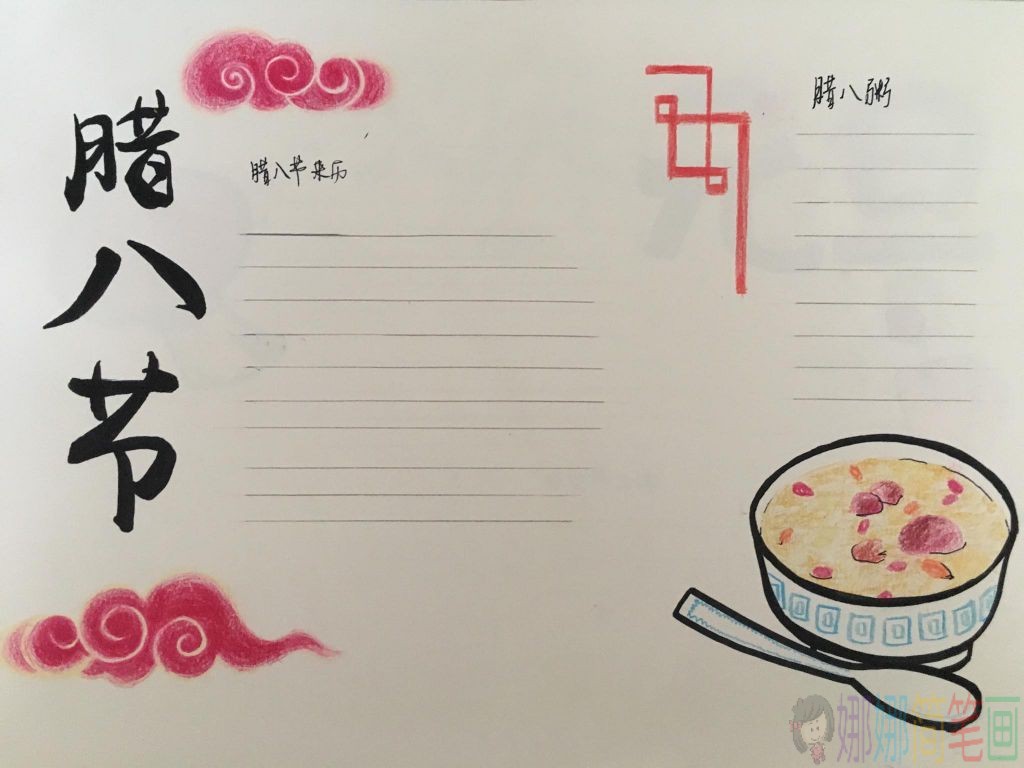 腊八节
腊八节来历
腊八粥
娜娜简笔画